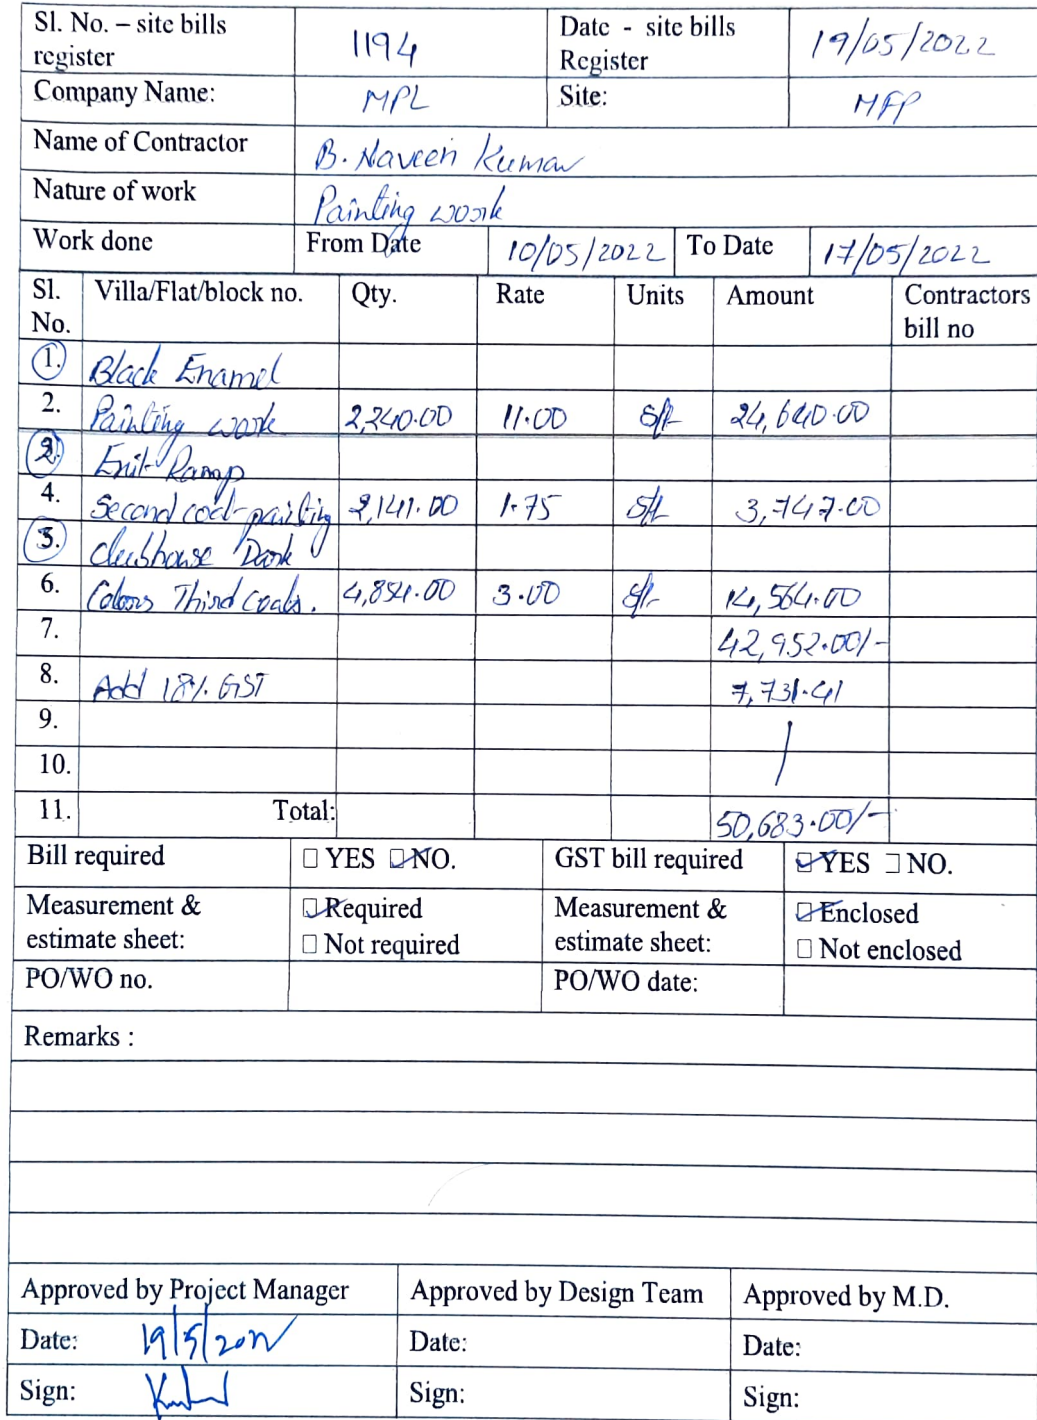 Sl. No. – site bills register 1194 Date - site bills Register 19/05/2022
Company Name: MPL Site: MFP
Name of Contractor B. Naveen Kumar
Nature of work Painting work
Work done From Date 10/05/2022 To Date 17/05/2022
Sl. No. Villa/Flat/block no. Qty. Rate Units Amount Contractors bill no
1. Black Enamel
2. Painting work 2,240.00 11.00 sft 24,640.00
2. Exit Ramp
4. Second coat painting 2,141.00 1.75 sft 3,747.00
3. Clubhouse Dark
6. Colours Third coats. 4,854.00 3.00 sft 14,564.00
7. 42,952.00/-
8. Add 18% GST 7,731.41
9.
10.
11. Total: 50,683.00/-
Bill required □ YES ☑ NO. GST bill required ☑ YES □ NO.
Measurement & estimate sheet: ☑ Required □ Not required Measurement & estimate sheet: ☑ Enclosed □ Not enclosed
PO/WO no. PO/WO date:
Remarks :
Approved by Project Manager Approved by Design Team Approved by M.D.
Date: 19/5/2022 Date: Date:
Sign: Sign: Sign: